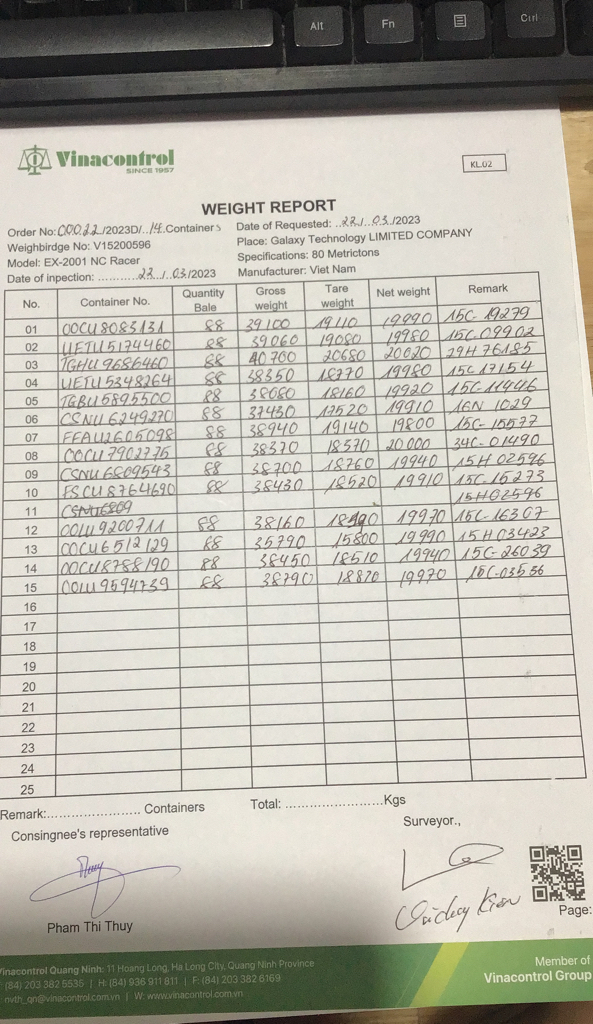 Alt
Fn
Ctrl
Vinacontrol
SINCE 1957
KL.02
WEIGHT REPORT
Order No: 00022/2023D/..14.Containers Date of Requested: ..22./..03./2023
Weighbirdge No: V15200596 Place: Galaxy Technology LIMITED COMPANY
Model: EX-2001 NC Racer Specifications: 80 Metrictons
Date of inpection: ...........22../03/2023 Manufacturer: Viet Nam
No. Container No. Quantity Bale Gross weight Tare weight Net weight Remark
01 OOCU8083131 88 39100 19110 19990 15C-19279
02 UETU5174460 88 39060 19080 19980 15C-09902
03 TGHU9686460 88 40700 20680 20020 29H76185
04 UETU5348264 88 38350 18370 19980 15C17154
05 TGBU5895500 88 38080 18160 19920 15C-11446
06 CSNU6249270 88 37430 17520 19910 16N 1029
07 FFAU2605098 88 38940 19140 19800 15C-15577
08 OOCU7902775 88 38570 18570 20000 34C-01490
09 CSNU6809543 88 38700 18760 19940 15H02596
10 FSCU8764690 88 38430 18520 19910 15C-15273
11 15H02596
12 OOLU9200711 88 38160 19970 15C-16307
13 OOCU6512129 88 35790 15800 19990 15H03423
14 OOCU8788190 88 38450 18510 19940 15C-26039
15 OOLU9594739 88 38790 18820 19970 15C-03536
16
17
18
19
20
21
22
23
24
25
Remark:....................... Containers Total: ........................Kgs
Consingnee's representative Surveyor.,
Pham Thi Thuy
Page:
Vinacontrol Quang Ninh: 11 Hoang Long, Ha Long City, Quang Ninh Province
(84) 203 382 5535 | H: (84) 936 911 811 | F: (84) 203 382 6169
nvth_qn@vinacontrol.com.vn | W: www.vinacontrol.com.vn
Member of
Vinacontrol Group